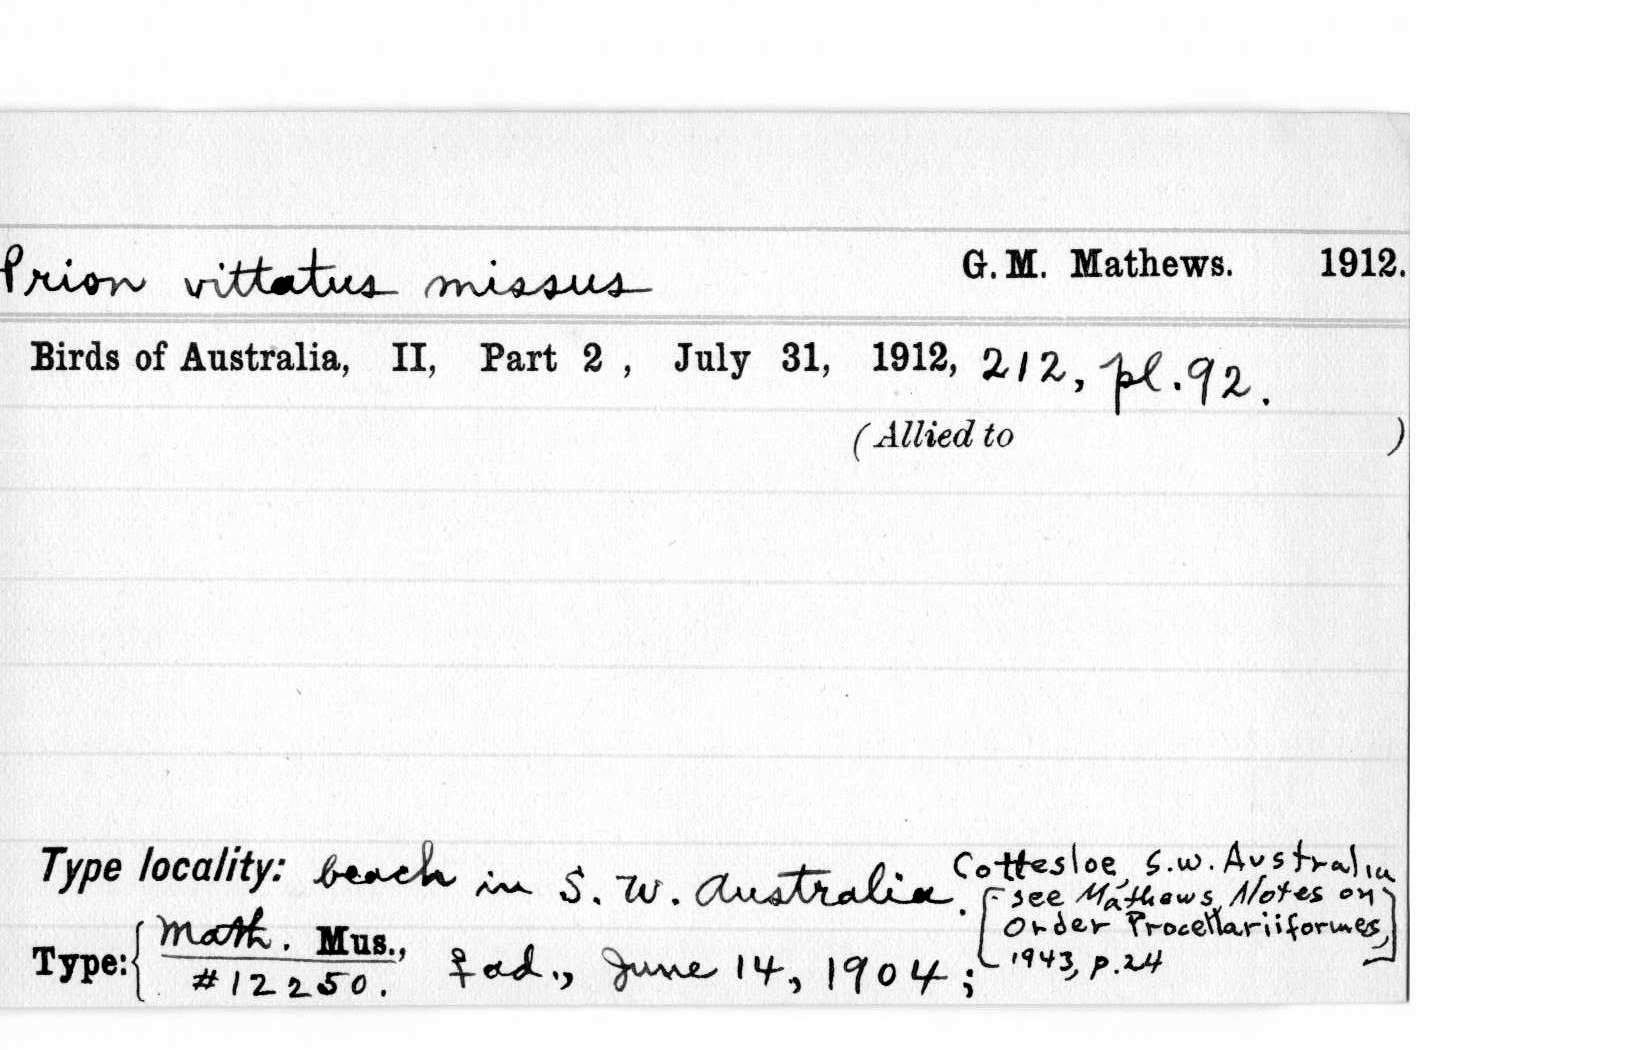 Prion vittatus missus G. M. Mathews. 1912.
Birds of Australia, II, Part 2, July 31, 1912, 212, pl. 92.
(Allied to )
Type locality: beach in S. W. Australia. Cottesloe, S.W. Australia
[see Mathews, Notes on
Order Procellariiformes,
1943, p. 24]
Type: { Math. Mus., ♀ ad., June 14, 1904;
#12250.